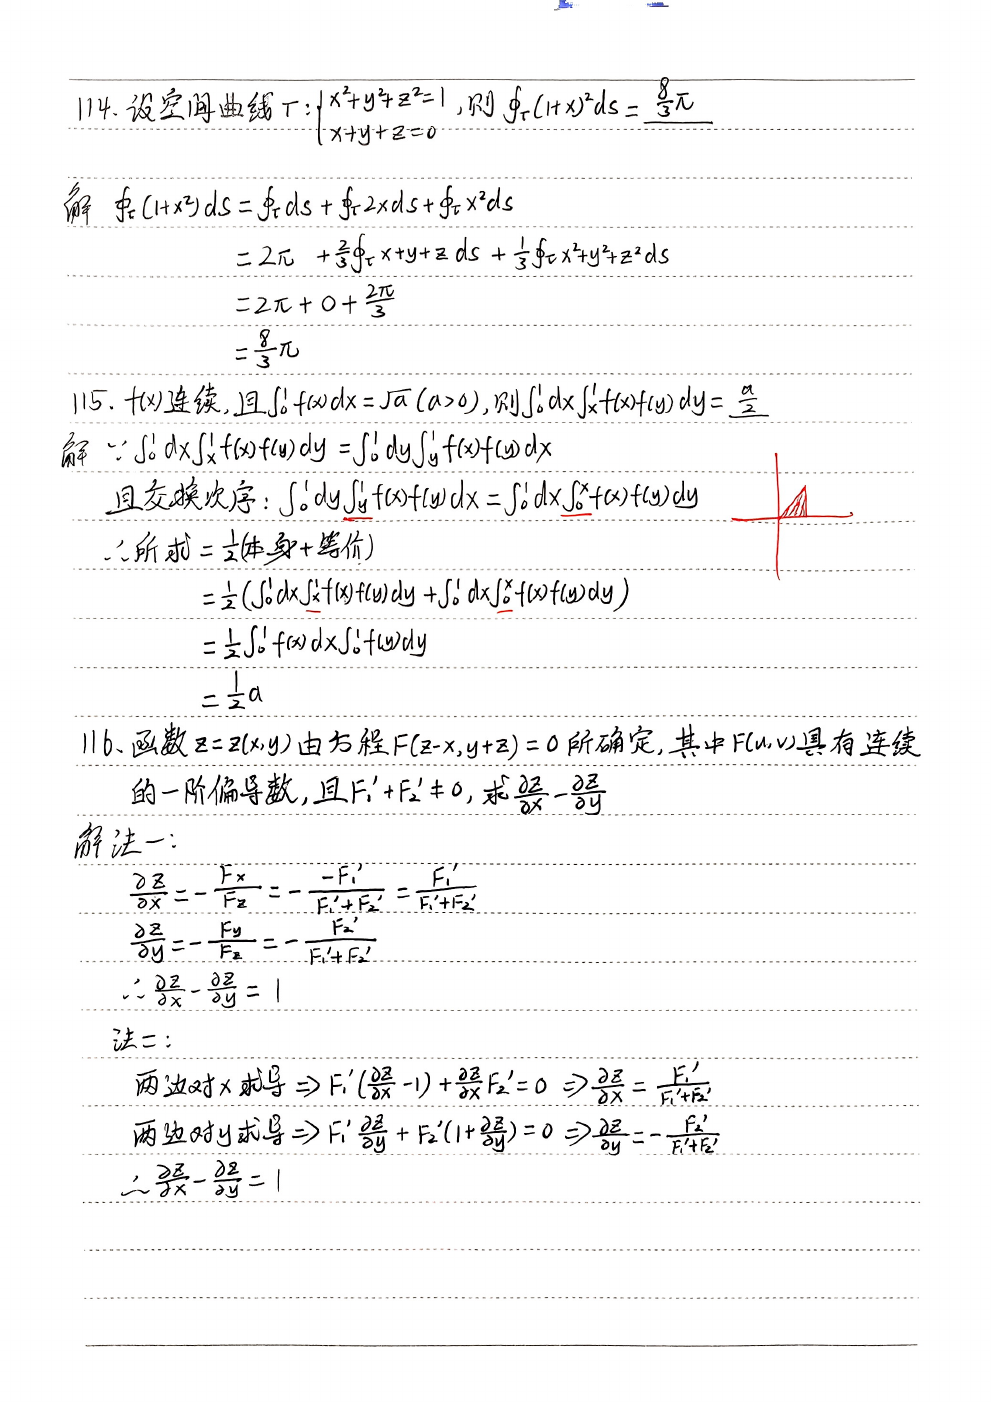 114、设空间曲线τ:{x²+y²+z²=1, x+y+z=0, 则∮τ(1+x)²ds=8/3π
解 ∮τ(1+x²)ds=∮τds+∮τ2xds+∮τx²ds
=2π +2/3∮τx+y+z ds+1/3∮τx²+y²+z²ds
=2π+0+2π/3
=8/3π
115. f(x)连续,且∫₀¹f(x)dx=√a(a>0),则∫₀¹dx∫ₓ¹f(x)f(y)dy=a/2
解 ∵∫₀¹dx∫ₓ¹f(x)f(y)dy=∫₀¹dy∫_y¹f(x)f(y)dx
且交换次序:∫₀¹dy∫_y¹f(x)f(y)dx=∫₀¹dx∫₀ˣf(x)f(y)dy
∴所求=1/2(本身+等价)
=1/2(∫₀¹dx∫ₓ¹f(x)f(y)dy+∫₀¹dx∫₀ˣf(x)f(y)dy)
=1/2∫₀¹f(x)dx∫₀¹f(y)dy
=1/2a
116、函数z=z(x,y)由方程F(z-x,y+z)=0所确定,其中F(u,v)具有连续
的一阶偏导数,且F₁'+F₂'≠0,求∂z/∂x-∂z/∂y
解 法一:
∂z/∂x=-Fx/Fz=--F₁'/(F₁'+F₂')=F₁'/(F₁'+F₂')
∂z/∂y=-Fy/Fz=-F₂'/(F₁'+F₂')
∴∂z/∂x-∂z/∂y=1
法二:
两边对x求导⇒F₁'(∂z/∂x-1)+∂z/∂xF₂'=0⇒∂z/∂x=F₁'/(F₁'+F₂')
两边对y求导⇒F₁'∂z/∂y+F₂'(1+∂z/∂y)=0⇒∂z/∂y=-F₂'/(F₁'+F₂')
∴∂z/∂x-∂z/∂y=1